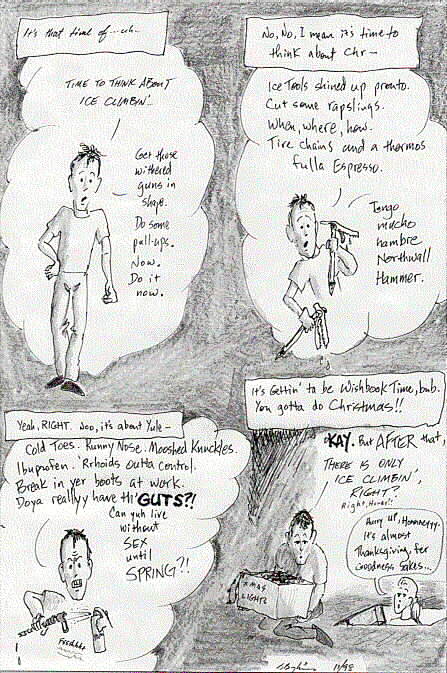 It's that time of...uh..
TIME TO THINK ABOUT
ICE CLIMBIN'.
Get those
withered
guns in
shape.
Do some
pull-ups.
Now.
Do it
now.
No, No, I mean it's time to
think about Chr —
Ice Tools shined up pronto.
Cut some rapslings.
When, where, how.
Tire chains and a thermos
fulla Espresso.
Tengo
mucho
hambre
Northwall
Hammer.
Yeah, RIGHT. Noo, it's about Yule —
Cold Toes. Runny Nose. Mooshed Knuckles.
Ibuprofen. 'Rrhoids Outta Control.
Break in yer boots at work.
Doya reallyy have th' GUTS?!
Can yuh live
without
SEX
until
SPRING?!
Fsshhhh
It's Gettin' to be Wishbook Time, bub.
You gotta do Christmas!!
OKAY. But AFTER that,
THERE IS ONLY
ICE CLIMBIN',
RIGHT?
Right, Honey?
Hurry up, Honneyyy.
It's almost
Thanksgiving, fer
Goodness Sakes...
XMAS
LIGHTS
11/98